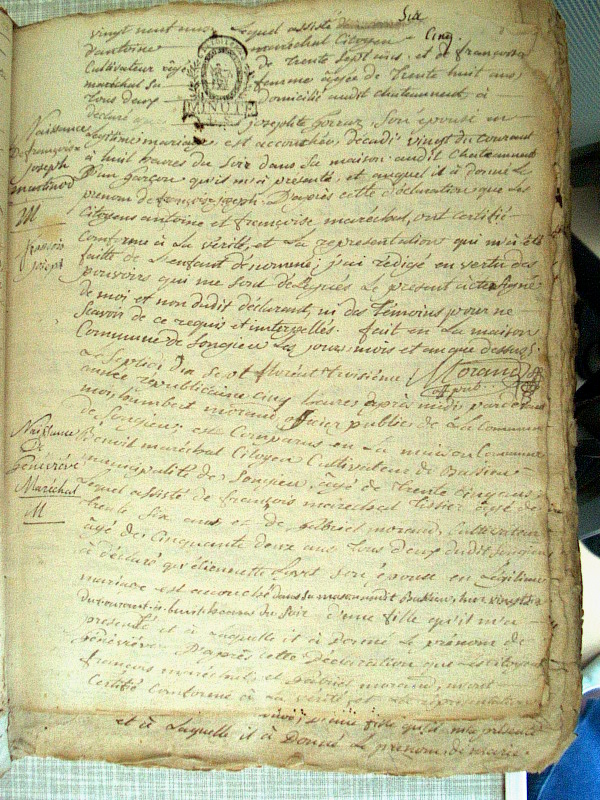 Six
vingt neuf ans lequel assisté
d'antoine maréchal Citoyen Cinq
Cultivateur âgé de trente sept ans, et de françoise
maréchal sa femme âgée de trente huit ans,
tous deux domicilié audit chatenmont à
déclaré que josephte son épouse en
légitime mariage est accouchée décadi vingt du courant
à huit heures du soir dans sa maison audit
D'un garçon qu'il m'a présenté, et auquel il à donné le
prenom de françois joseph. D'après cette déclaration que les
Citoyens antoine et françoise maréchal, ont certifié
Conforme à la vérité, et la représentation qui m'a été
faitte de l'enfant dénommé; j'ai rédigé en vertu des
pouvoirs qui me sont délégués le présent acte signé
de moi et non dudit déclarant, ni des témoins pour ne
scavoir de ce requis et interpellés. fait en la maison
Commune de Songieu les jour, mois et an que dessus.
Morand off pub.
Naissance
De françois
Joseph
M
françois
joseph
septidi floréal troisième
année républicaine cinq heures après midi par devant
moi humbert morand officier public de la Commune
de Songieu, est Comparus en la maison Commune
Benoit maréchal Citoyen Cultivateur de
municipalité de Songieu, âgé de trente cinq ans,
lequel assisté de françois maréchal tissier âgé de
trente six ans et de gabriel morand, Cultivateur
âgé de Cinquante deux ans tous deux dudit Songieu
à déclaré qu'étiennette son épouse en légitime
mariage est accouchée dans sa maison audit
du courant à huit heures du soir d'une fille qu'il m'a
présenté et à laquelle il à donné le prénom de
Génévième D'après cette Déclaration que les citoyens
françois maréchal, et gabriel morand, m'ont
Certifié Conforme à la vérité, et la représentation
Naissance
De
Génévieve
Maréchal
M
d'une fille qu'il m'a présenté
et à laquelle il à Donné le prenom de marie.